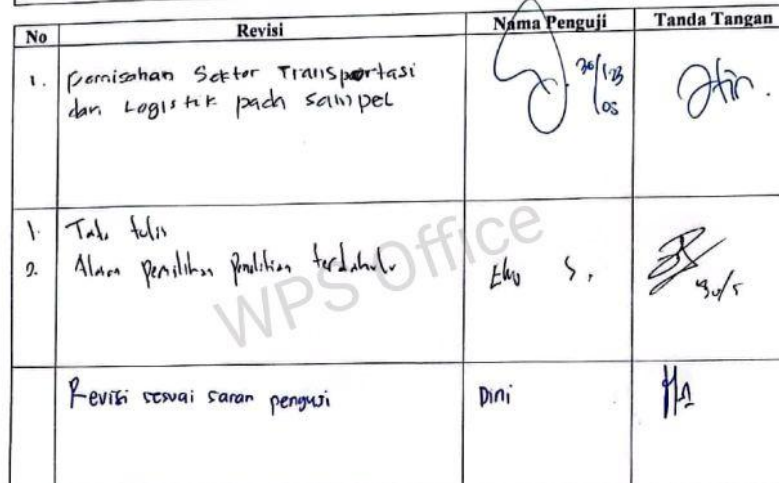 No Revisi Nama Penguji Tanda Tangan
1. Pemisahan Sektor Transportasi
dan Logistik pada sampel
30/
1. Tata tulis
2. Alasan pemilihan penelitian terdahulu
Eko S.
30/5
Revisi sesuai saran penguji
Dini
WPS Office